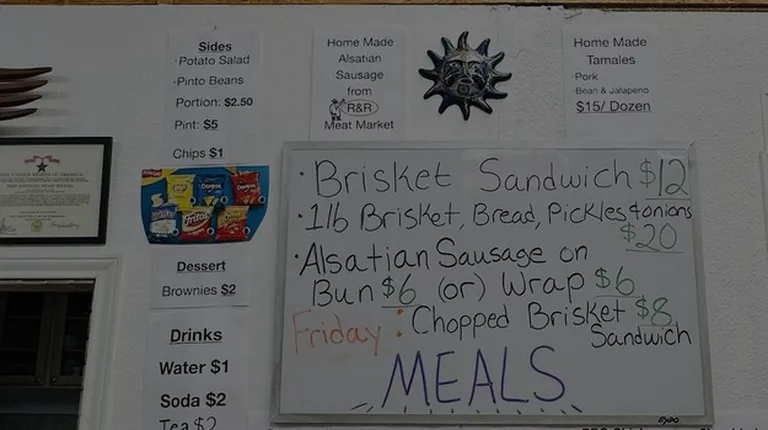 Sides
·Potato Salad
·Pinto Beans
Portion: $2.50
Pint: $5
Chips $1
Dessert
Brownies $2
Drinks
Water $1
Soda $2
Tea $2
Home Made
Alsatian
Sausage
from
R&R
Meat Market
Home Made
Tamales
·Pork
·Bean & Jalapeno
$15/ Dozen
·Brisket Sandwich $12
·1lb Brisket, Bread, Pickles & onions
$20
·Alsatian Sausage on
Bun $6 (or) Wrap $6
Friday: Chopped Brisket $8
Sandwich
MEALS
EXPO